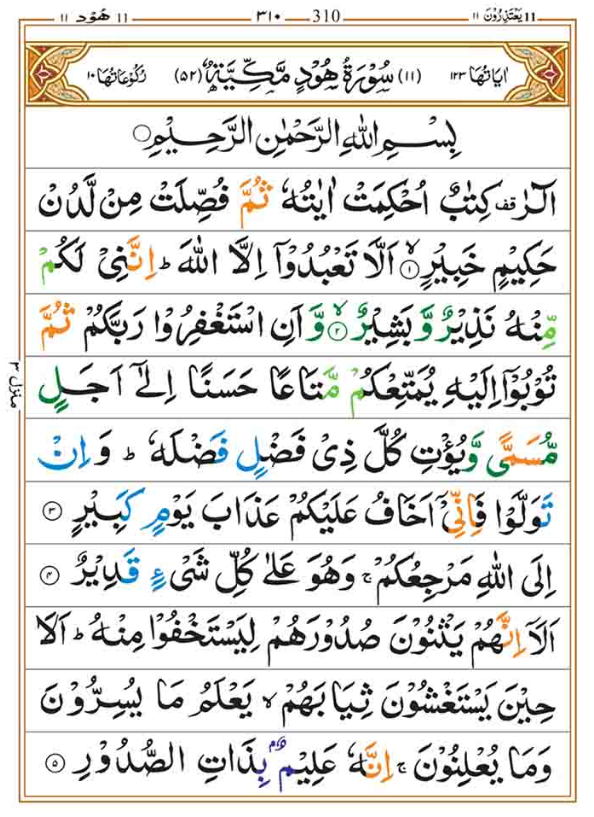 ١١ يَعْتَذِرُوْن ١١ 310 ٣١٠ ١١ هُوْد ١١
اٰيَاتُهَا ١٢٣ (١١) سُوْرَةُ هُوْدٍ مَّكِّيَّةٌ (٥٢) رُكُوْعَاتُهَا ١٠
بِسْمِ اللّٰهِ الرَّحْمٰنِ الرَّحِيْمِ۝
الٓرٰ قف كِتٰبٌ اُحْكِمَتْ اٰيٰتُهٗ ثُمَّ فُصِّلَتْ مِنْ لَّدُنْ
حَكِيْمٍ خَبِيْرٍ ۙ‏﴿۱﴾ اَلَّا تَعْبُدُوْۤا اِلَّا اللّٰهَ ؕ اِنَّنِيْ لَكُمْ
مِّنْهُ نَذِيْرٌ وَّبَشِيْرٌ ۙ‏﴿۲﴾ وَّاَنِ اسْتَغْفِرُوْا رَبَّكُمْ ثُمَّ
تُوْبُوْۤا اِلَيْهِ يُمَتِّعْكُمْ مَّتَاعًا حَسَنًا اِلٰٓى اَجَلٍ
مُّسَمًّى وَّيُؤْتِ كُلَّ ذِيْ فَضْلٍ فَضْلَهٗ ؕ وَاِنْ
تَوَلَّوْا فَاِنِّيْۤ اَخَافُ عَلَيْكُمْ عَذَابَ يَوْمٍ كَبِيْرٍ ﴿۳﴾
اِلَى اللّٰهِ مَرْجِعُكُمْ ۚ وَهُوَ عَلٰى كُلِّ شَيْءٍ قَدِيْرٌ ﴿۴﴾
اَلَاۤ اِنَّهُمْ يَثْنُوْنَ صُدُوْرَهُمْ لِيَسْتَخْفُوْا مِنْهُ ؕ اَلَا
حِيْنَ يَسْتَغْشُوْنَ ثِيَابَهُمْ ۙ يَعْلَمُ مَا يُسِرُّوْنَ
وَمَا يُعْلِنُوْنَ ۚ اِنَّهٗ عَلِيْمٌۢ بِذَاتِ الصُّدُوْرِ ﴿۵﴾
منزل ٣